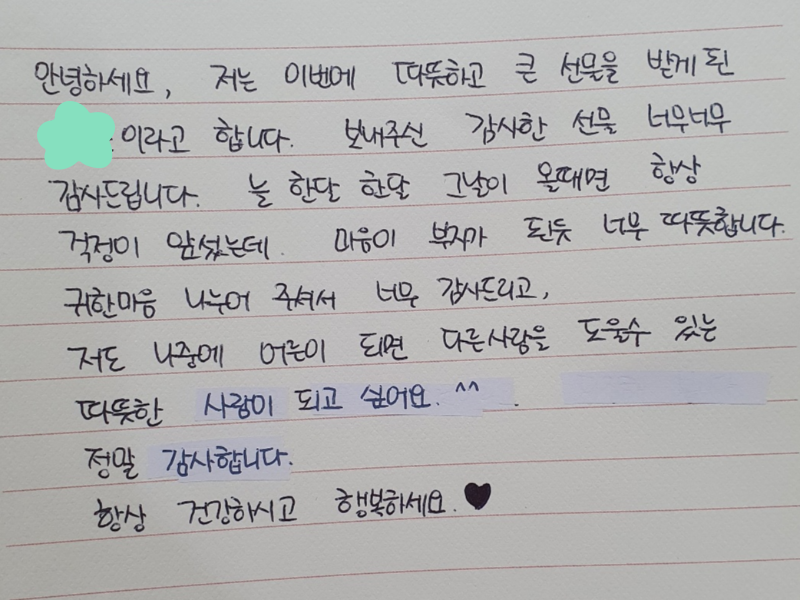 안녕하세요, 저는 이번에 따뜻하고 큰 선물을 받게 된
이라고 합니다. 보내주신 감사한 선물 너무너무
감사드립니다. 늘 한달 한달 그날이 올때면 항상
걱정이 앞섰는데. 마음이 부자가 된듯 너무 따뜻합니다.
귀한마음 나누어 주셔서 너무 감사드리고,
저도 나중에 어른이 되면 다른사람을 도울수 있는
따뜻한 사람이 되고 싶어요. ^^ .
정말 감사합니다.
항상 건강하시고 행복하세요. ♥